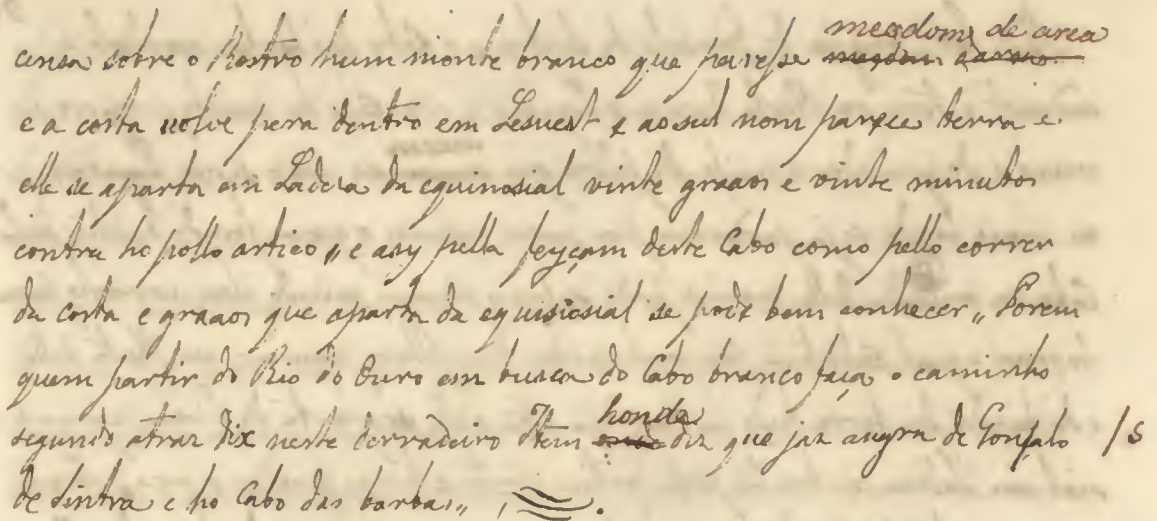 megdom de area
censa sobre o Rostro hum monte branco que paresse megdom darmo
e a costa uolve pera dentro em Lesuest e ao sul nom parece terra e
elle se aparta em Ladesa da equinosial vinte graaos e vinte minutos
contra ho pollo artico,, e asy pella feyçam deste Cabo como pello correr
da costa e graaos que aparta da equisiosial se pode bem conhecer,, Porem
quem partir do Rio do Ouro em busca do Cabo branco faça o caminho
honde
segundo atraz dix neste derradeiro Item diz que jaz angra de Gonsalo /s
de Sintra e ho Cabo das barbas,,